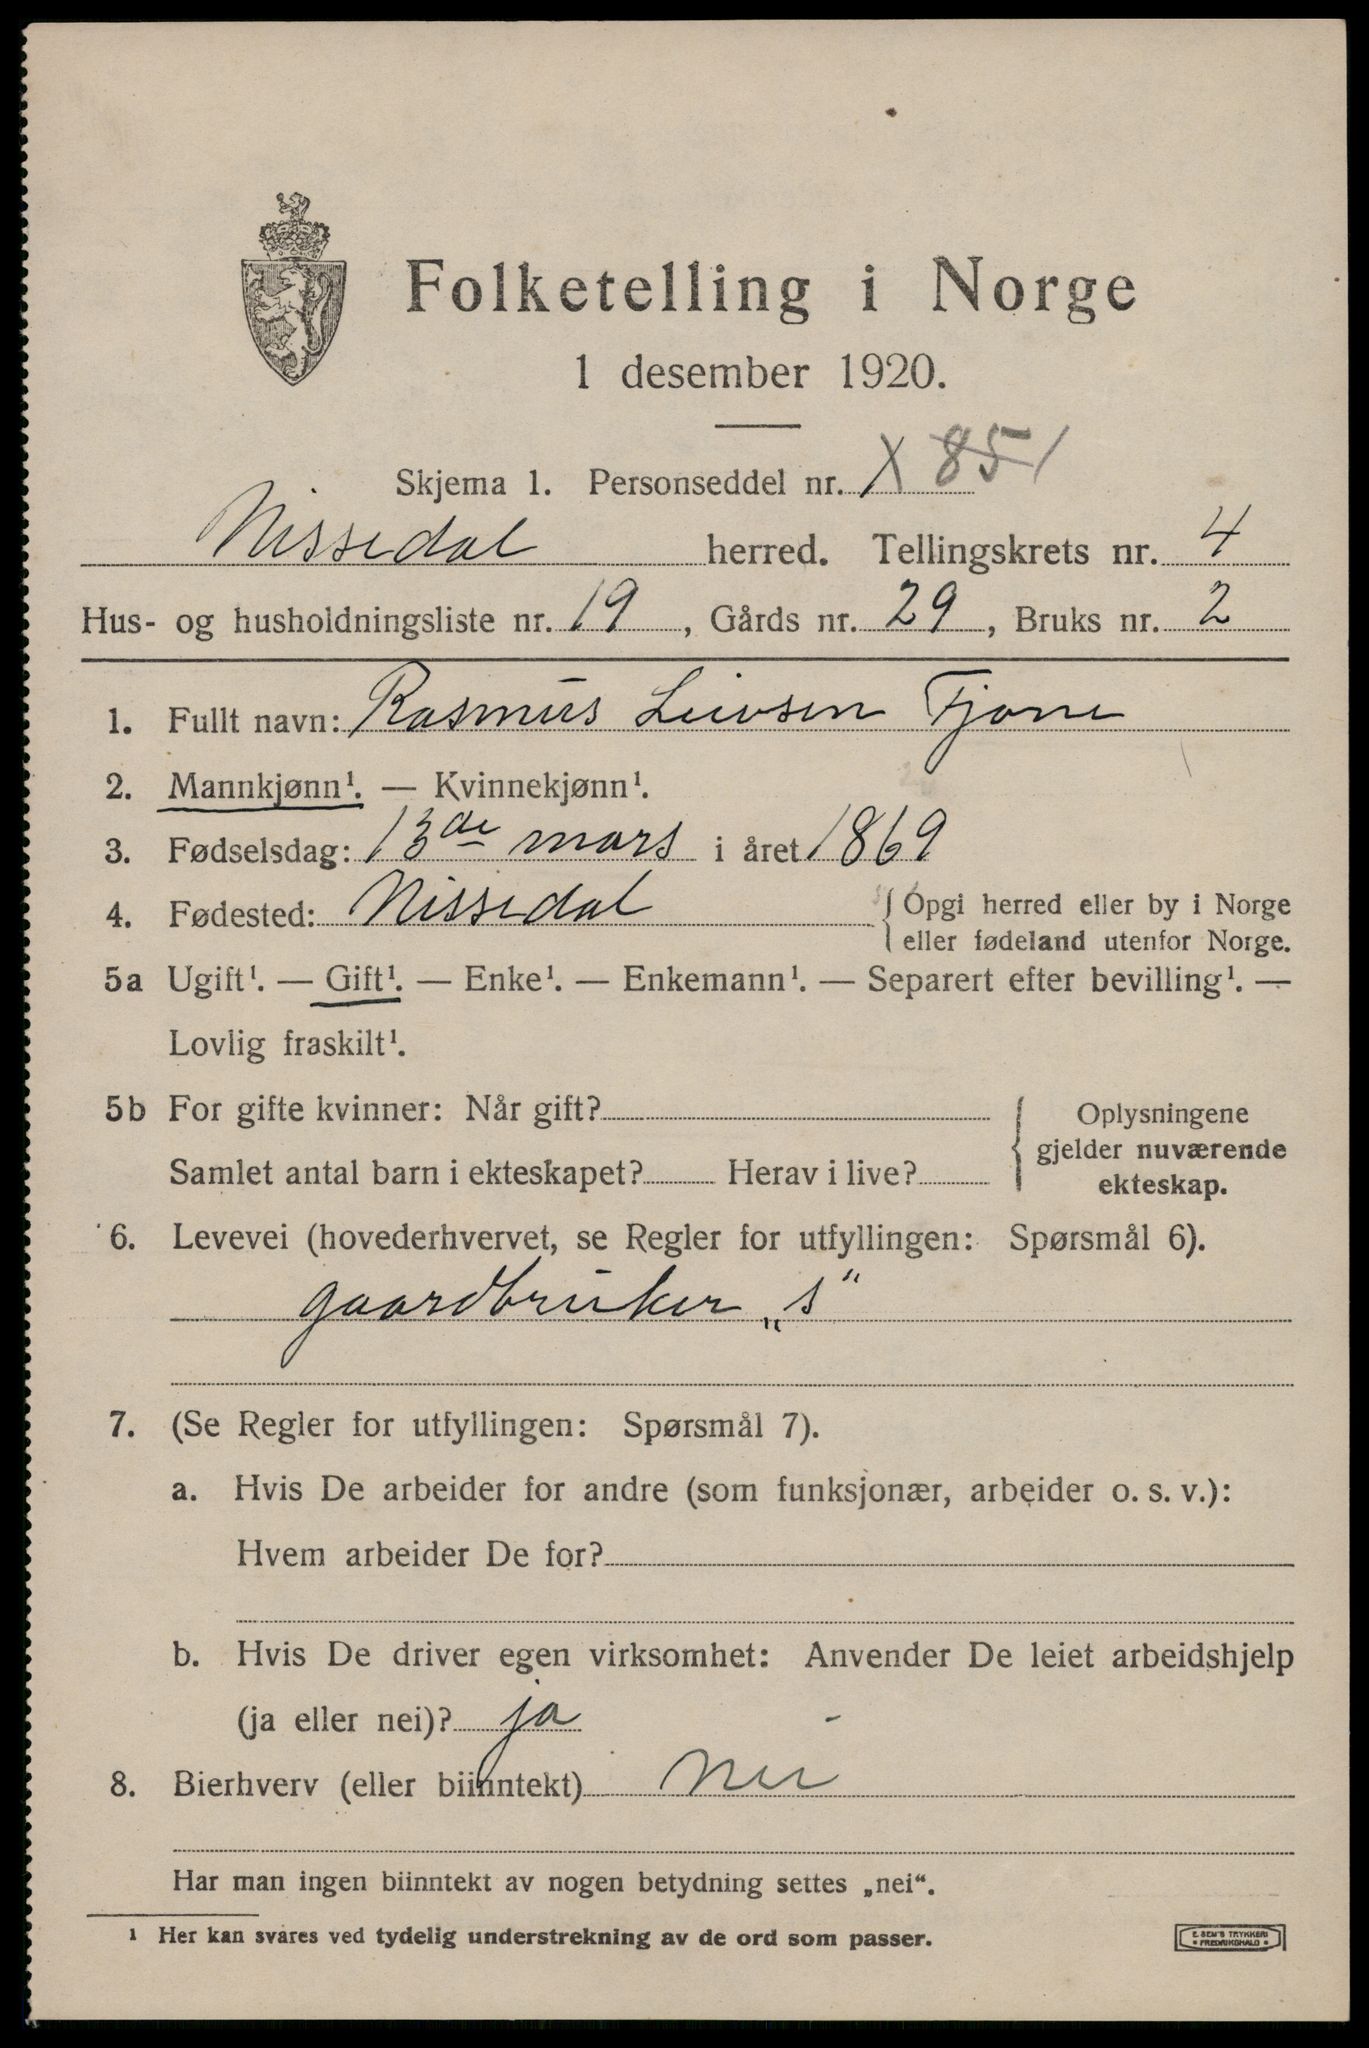 Folketelling i Norge
1 desember 1920.
Skjema 1. Personseddel nr. X 851
Nissedal herred. Tellingskrets nr. 4
Hus- og husholdningsliste nr. 19, Gårds nr. 29, Bruks nr. 2
1. Fullt navn: Rasmus Leivsen Fjone
2. Mannkjønn¹. — Kvinnekjønn¹.
3. Fødselsdag: 13de mars i året 1869
4. Fødested: Nissedal { Opgi herred eller by i Norge
eller fødeland utenfor Norge.
5a Ugift¹. — Gift¹. — Enke¹. — Enkemann¹. — Separert efter bevilling¹. —
Lovlig fraskilt¹.
5b For gifte kvinner: Når gift?
Samlet antal barn i ekteskapet? Herav i live?
Oplysningene
gjelder nuværende
ekteskap.
6. Levevei (hovederhvervet, se Regler for utfyllingen: Spørsmål 6).
gaardbruker „s“
7. (Se Regler for utfyllingen: Spørsmål 7).
a. Hvis De arbeider for andre (som funksjonær, arbeider o. s. v.):
Hvem arbeider De for?
b. Hvis De driver egen virksomhet: Anvender De leiet arbeidshjelp
(ja eller nei)? ja
8. Bierhverv (eller biinntekt) Nei
Har man ingen biinntekt av nogen betydning settes „nei“.
¹ Her kan svares ved tydelig understrekning av de ord som passer.
E. SEM'S TRYKKERI
FREDRIKSHALD